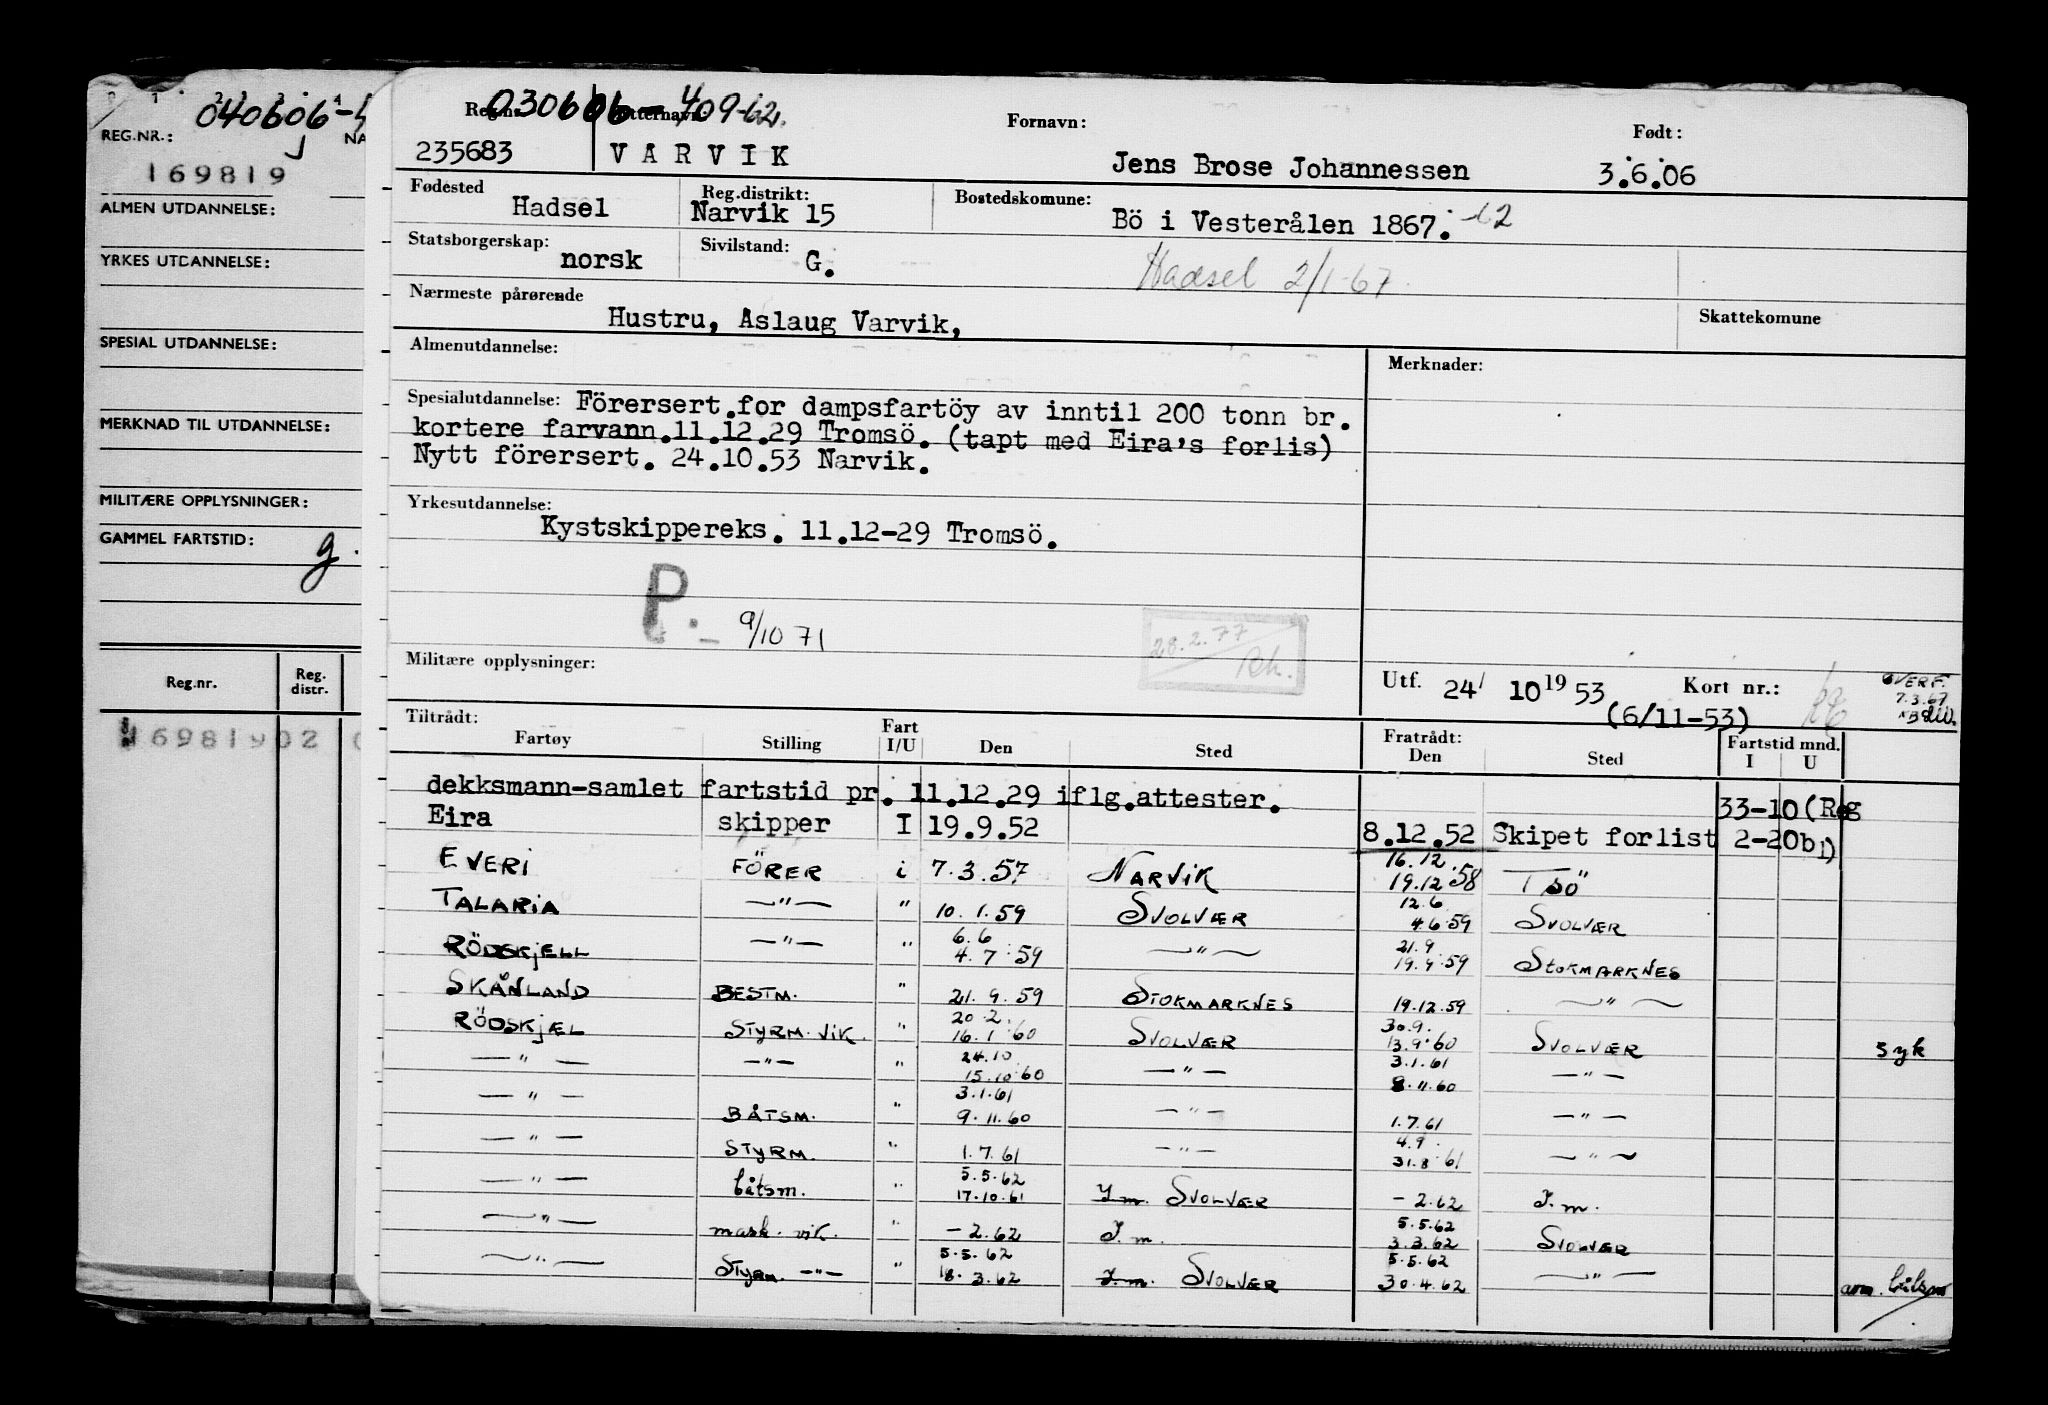 040606-
REG.NR.:
NA
169819
ALMEN UTDANNELSE:
YRKES UTDANNELSE:
SPESIAL UTDANNELSE:
MERKNAD TIL UTDANNELSE:
MILITÆRE OPPLYSNINGER:
GAMMEL FARTSTID: g.
Reg.nr. Reg. distr.
16981902
030606-409-62.
Reg.nr. Etternavn: Fornavn: Født:
235683 VARVIK Jens Brose Johannessen 3.6.06
Fødested Reg.distrikt: Bostedskomune:
Hadsel Narvik 15 Bö i Vesterålen 1867. -62
Statsborgerskap: norsk Sivilstand: G. Hadsel 2/1-67.
Nærmeste pårørende Skattekomune
Hustru, Aslaug Varvik,
Almenutdannelse: Merknader:
Spesialutdannelse: Förersert.for dampsfartöy av inntil 200 tonn br.
kortere farvann.11.12.29 Tromsö. (tapt med Eira's forlis)
Nytt förersert. 24.10.53 Narvik.
Yrkesutdannelse:
Kystskippereks. 11.12-29 Tromsö.
P. 9/10 71
28.2.77
Rh.
Militære opplysninger: Utf. 24/ 10 19 53 Kort nr.:
(6/11-53)
OVERF.
7.3.67
Tiltrådt: Fart Fratrådt: Fartstid mnd.
Fartøy Stilling I/U Den Sted Den Sted I U
dekksmann-samlet fartstid pr. 11.12.29 iflg.attester. 33-10(Reg
Eira skipper I 19.9.52 8.12.52 Skipet forlist 2-20b1)
EVERI FÖRER i 7.3.57 NARVIK 16.12 19.12.58 TSÖ
TALARIA —"— " 10.1.59 SVOLVÆR 12.6 4.6.59 SVOLVÆR
RÖDSKJELL —"— " 6.6 4.7.59 —"— 21.9 19.9.59 STOKMARKNES
SKÅNLAND BESTM. " 21.9.59 STOKMARKNES 19.12.59 —"—
RÖDSKJÆL STYRM. VIK. " 20.2. 16.1.60 SVOLVÆR 30.9. 13.9.60 SVOLVÆR syk
—"— —"— " 24.10 15.10.60 —"— 3.1.61 8.11.60 —"—
—"— BÅTSM. " 3.1.61 9.11.60 —"— 1.7.61 —"—
—"— STYRM. " 1.7.61 —"— 4.9. 31.8.61 —"—
—"— båtsm. " 5.5.62 17.10.61 I.m. SVOLVÆR -2.62 I.m.
—"— mask. vik. " -2.62 I.m. 5.5.62 3.3.62 SVOLVÆR
—"— STYRM. —"— " 5.5.62 18.3.62 I.m. SVOLVÆR 5.5.62 30.4.62 —"— båtsm